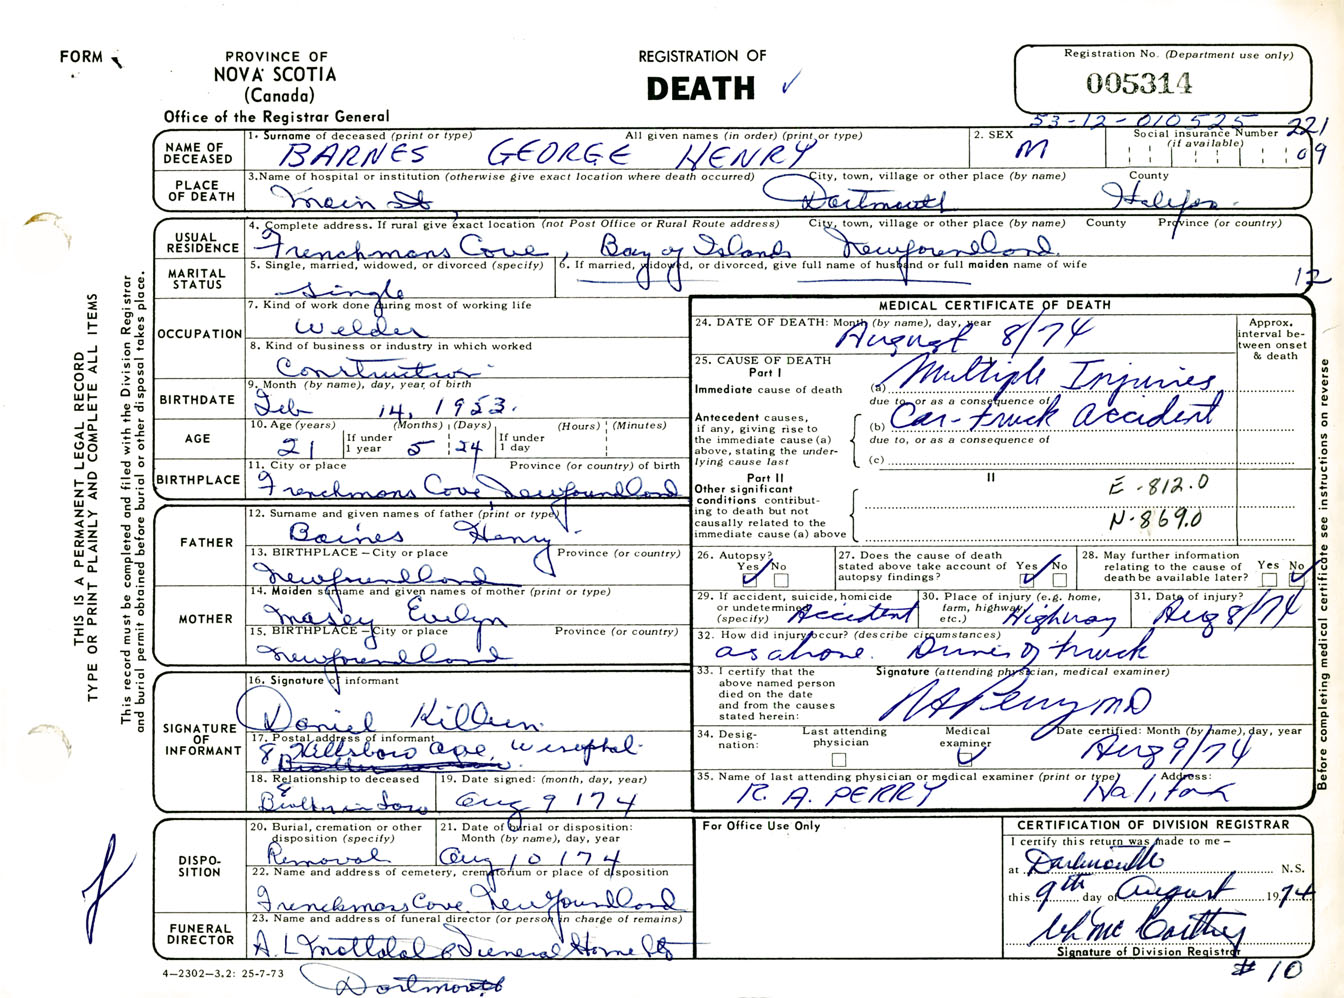 FORM
PROVINCE OF
NOVA SCOTIA
(Canada)
Office of the Registrar General
REGISTRATION OF
DEATH
Registration No. (Department use only)
005314
53-12-010525 221
09
THIS IS A PERMANENT LEGAL RECORD
TYPE OR PRINT PLAINLY AND COMPLETE ALL ITEMS
This record must be completed and filed with the Division Registrar
and burial permit obtained before burial or other disposal takes place.
NAME OF DECEASED
1. Surname of deceased (print or type) All given names (in order) (print or type)
BARNES GEORGE HENRY
2. SEX
M
Social insurance Number
(if available)
PLACE OF DEATH
3. Name of hospital or institution (otherwise give exact location where death occurred) City, town, village or other place (by name) County
Main St. Dartmouth Halifax.
USUAL RESIDENCE
4. Complete address. If rural give exact location (not Post Office or Rural Route address) City, town, village or other place (by name) County Province (or country)
Frenchmans Cove, Bay of Islands Newfoundland.
MARITAL STATUS
5. Single, married, widowed, or divorced (specify)
Single
6. If married, widowed, or divorced, give full name of husband or full maiden name of wife
12
OCCUPATION
7. Kind of work done during most of working life
Welder
8. Kind of business or industry in which worked
Construction
BIRTHDATE
9. Month (by name), day, year of birth
Feb 14, 1953.
AGE
10. Age (years) If under 1 year (Months) (Days) If under 1 day (Hours) (Minutes)
21 5 24
BIRTHPLACE
11. City or place Province (or country) of birth
Frenchmans Cove Newfoundland
FATHER
12. Surname and given names of father (print or type)
Barnes Henry
13. BIRTHPLACE – City or place Province (or country)
Newfoundland
MOTHER
14. Maiden surname and given names of mother (print or type)
Masey Evelyn
15. BIRTHPLACE – City or place Province (or country)
Newfoundland
SIGNATURE OF INFORMANT
16. Signature of informant
Daniel Killeen
17. Postal address of informant
8 Hillsboro Ave.
Brother in law.
18. Relationship to deceased
Brother in law
19. Date signed: (month, day, year)
Aug 9 174
DISPO-SITION
20. Burial, cremation or other disposition (specify)
Removal
21. Date of burial or disposition: Month (by name), day, year
Aug 10 174
22. Name and address of cemetery, crematorium or place of disposition
Frenchmans Cove, Newfoundland
FUNERAL DIRECTOR
23. Name and address of funeral director (or person in charge of remains)
A. L Mattatal Funeral Home
Dartmouth
4–2302–3.2: 25-7-73
MEDICAL CERTIFICATE OF DEATH
24. DATE OF DEATH: Month (by name), day, year
August 8/74
Approx. interval between onset & death
25. CAUSE OF DEATH
Part I
Immediate cause of death
(a) Multiple Injuries
due to, or as a consequence of
Antecedent causes, if any, giving rise to the immediate cause (a) above, stating the underlying cause last
(b) Car-truck accident
due to, or as a consequence of
(c)
Part II
Other significant conditions contributing to death but not causally related to the immediate cause (a) above
II
E-812.0
N-869.0
26. Autopsy? Yes No
27. Does the cause of death stated above take account of autopsy findings? Yes No
28. May further information relating to the cause of death be available later? Yes No
29. If accident, suicide, homicide or undetermined (specify)
Accident
30. Place of injury (e.g. home, farm, highway, etc.)
Highway
31. Date of injury?
Aug 8/74
32. How did injury occur? (describe circumstances)
as above. Driver of truck
33. I certify that the above named person died on the date and from the causes stated herein:
Signature (attending physician, medical examiner)
RAPerry MD
34. Desig-nation: Last attending physician Medical examiner
Date certified: Month (by name), day, year
Aug 9/74
35. Name of last attending physician or medical examiner (print or type) Address:
R. A. PERRY Halifax
Before completing medical certificate see instructions on reverse
For Office Use Only
CERTIFICATION OF DIVISION REGISTRAR
I certify this return was made to me –
at Dartmouth N.S.
this 9th day of August 1974
Signature of Division Registrar
# 10